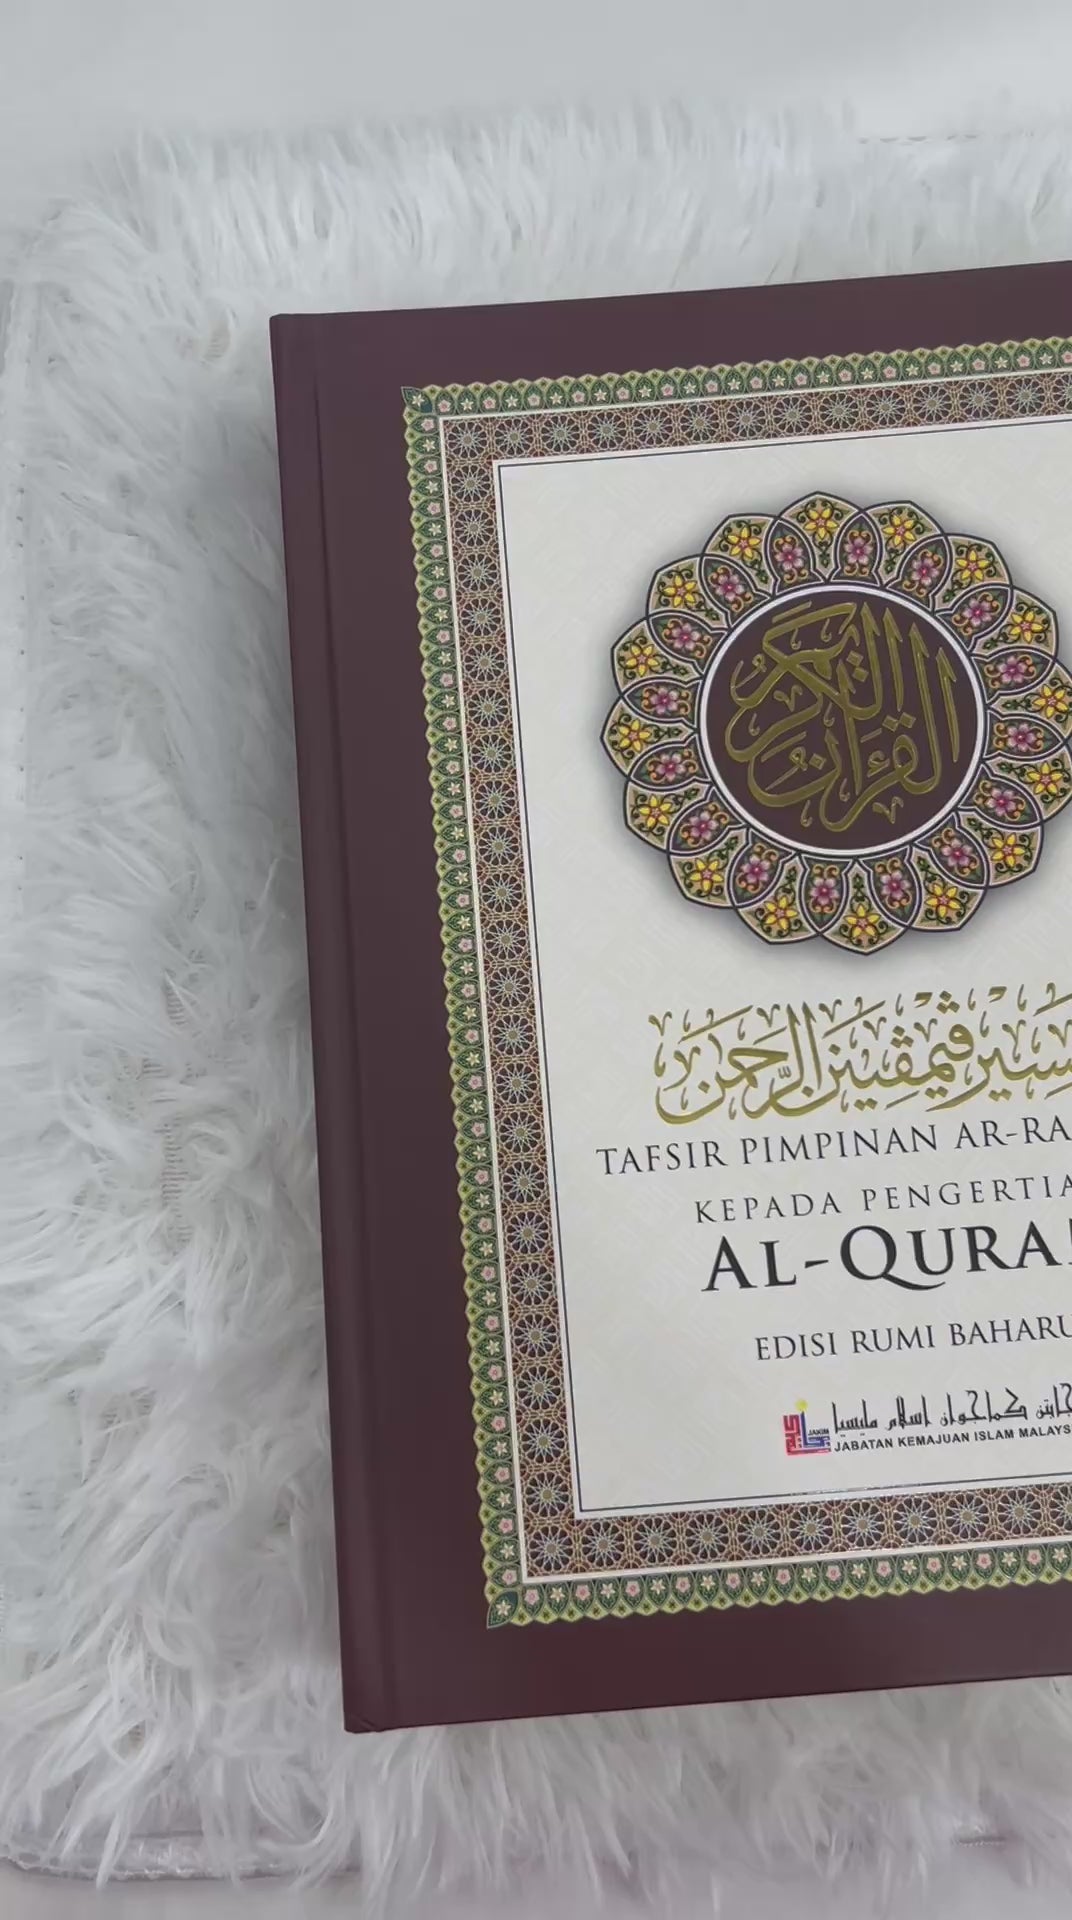 القرآن الكريم
سير ڤيمڤينن الرحمن
TAFSIR PIMPINAN AR-RA
KEPADA PENGERTIA
AL-QURA
EDISI RUMI BAHARU
جابتن کماجوان اسلام مليسيا
JAKIM
JABATAN KEMAJUAN ISLAM MALAYS